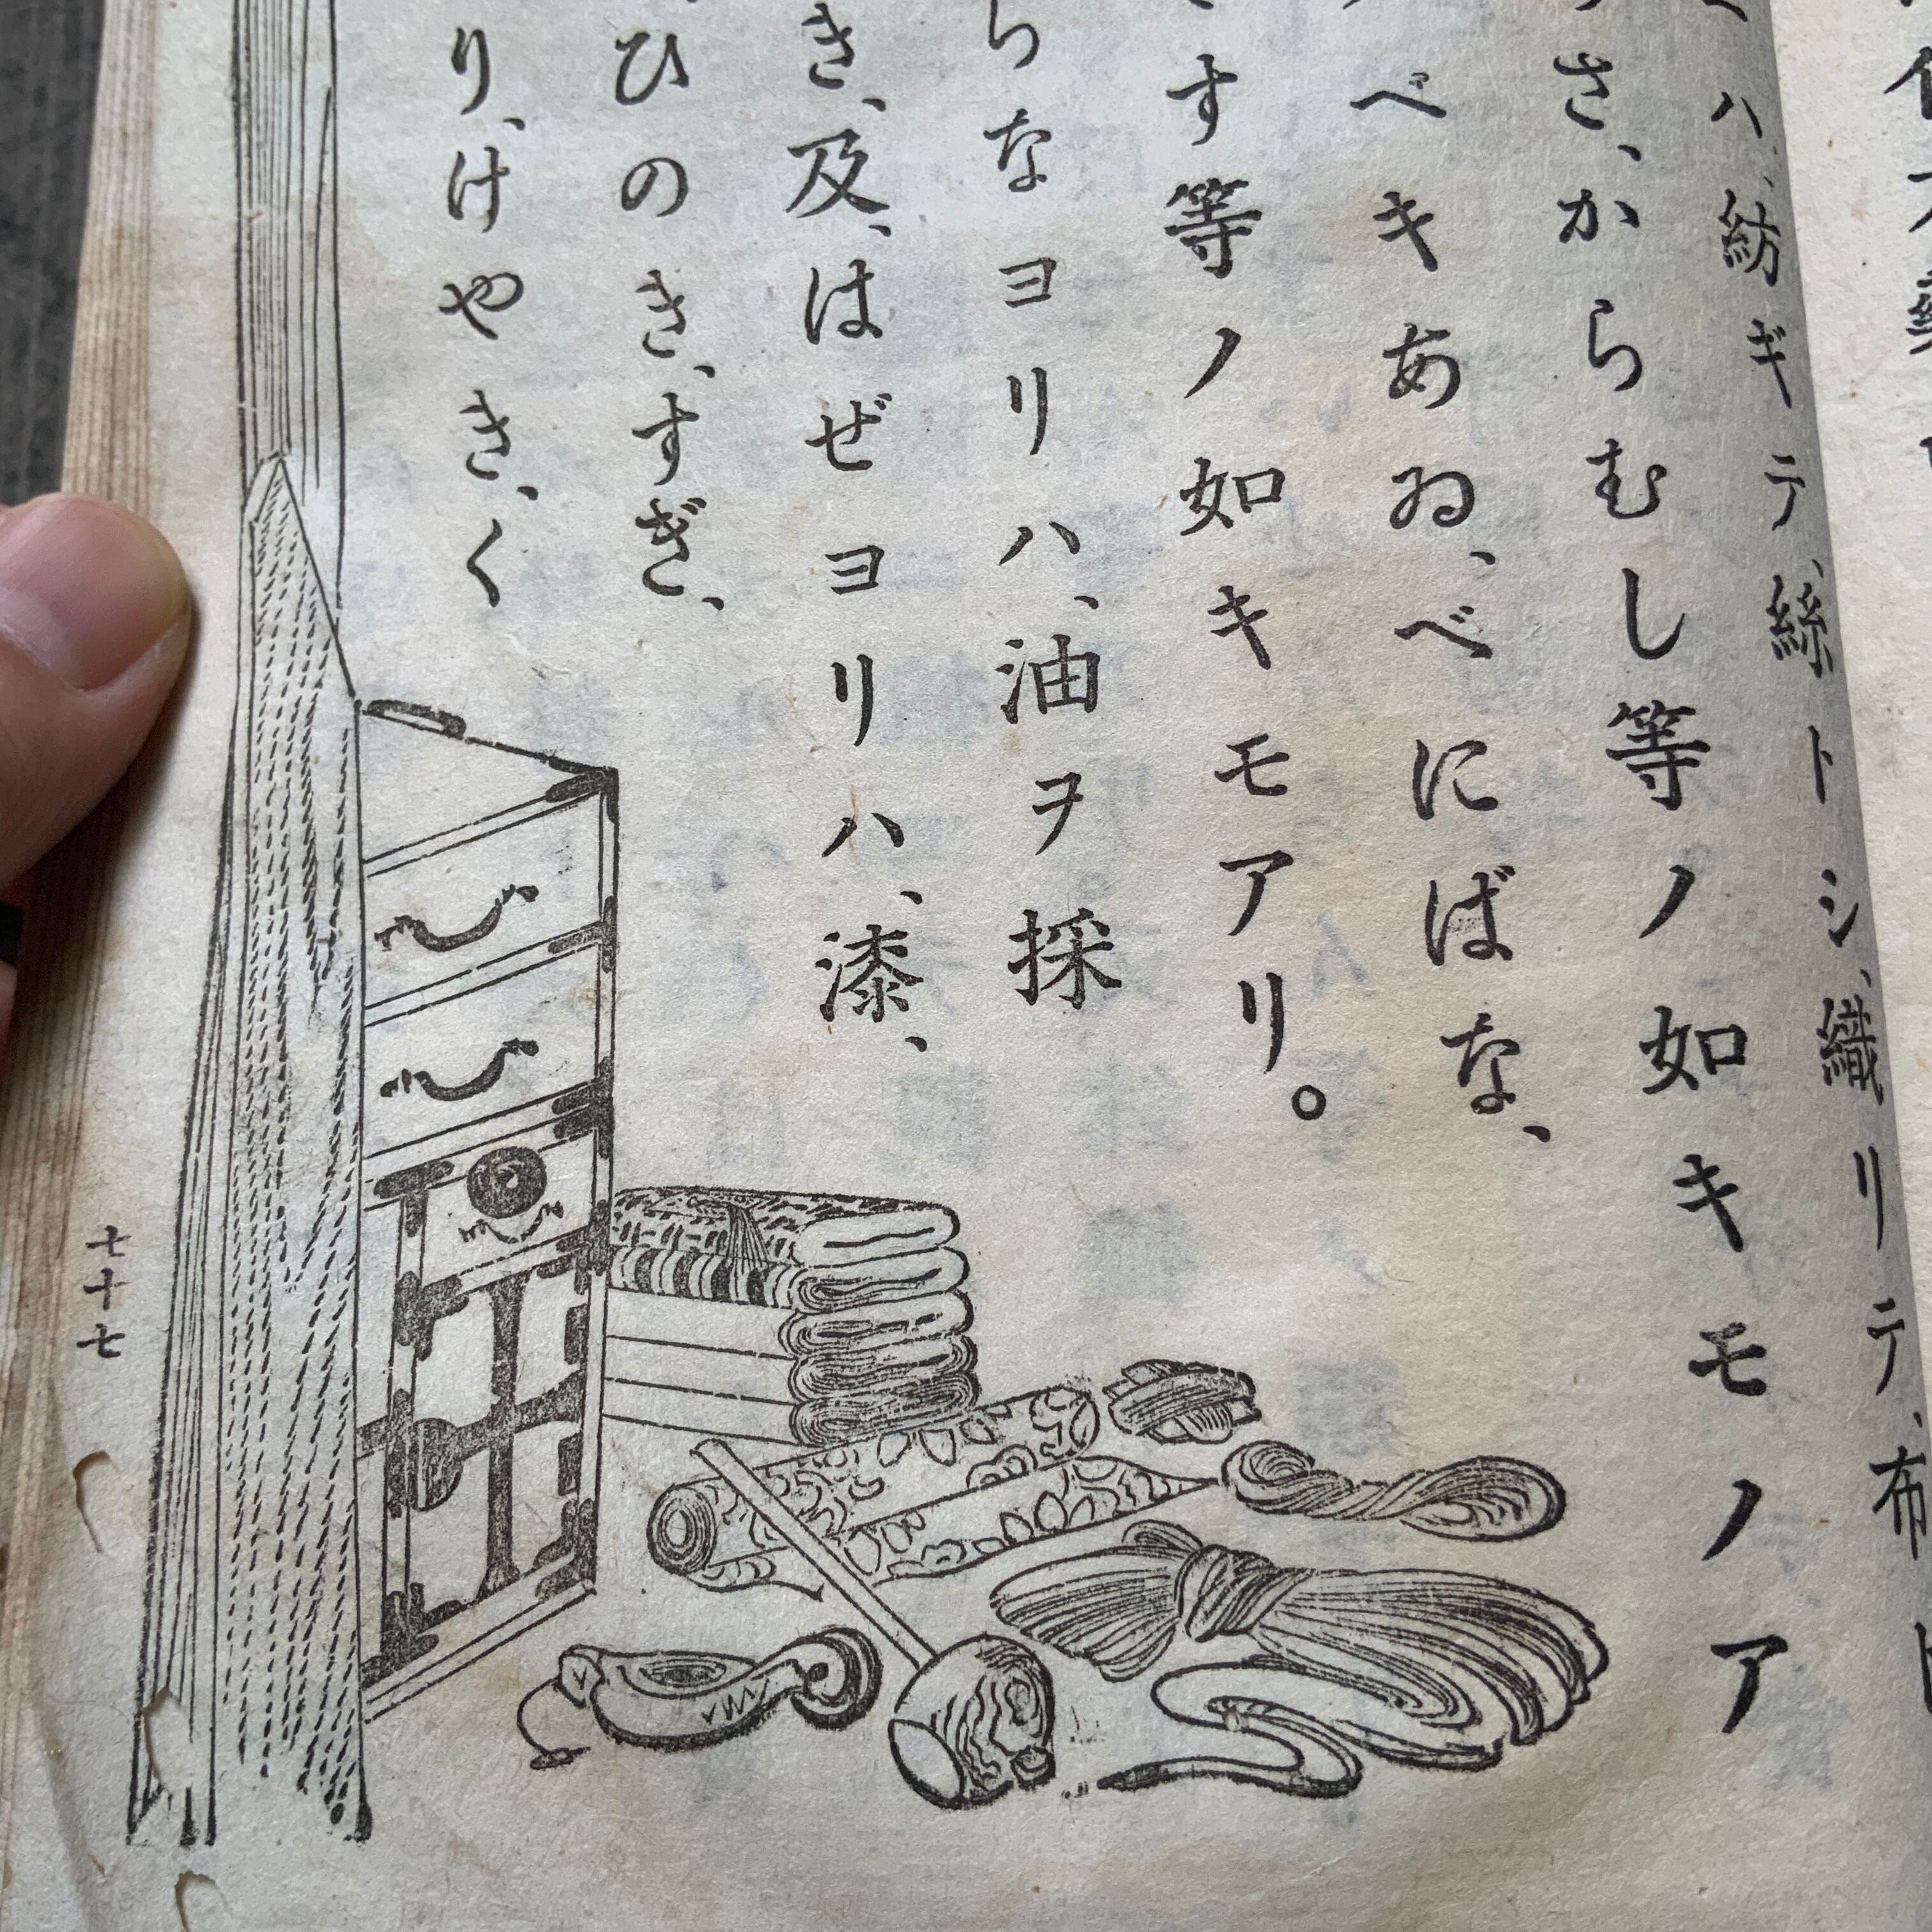 ハ、紡ギテ、絲トシ、織リテ、布
さ、からむし等ノ如キモノア
べキあゐ、べにばな、
す等ノ如キモアリ。
らなヨリハ、油ヲ採
き、及、はぜヨリハ、漆、
ひのき、すぎ、
り、けやき、く
七十七